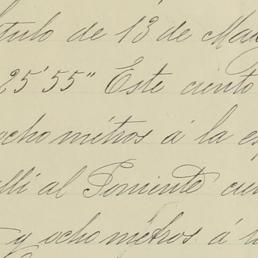 ítulo de 13 de Ma
25'55" Este ciento
ocho métros á la es
lli al Poniente cu
y ocho métros á l